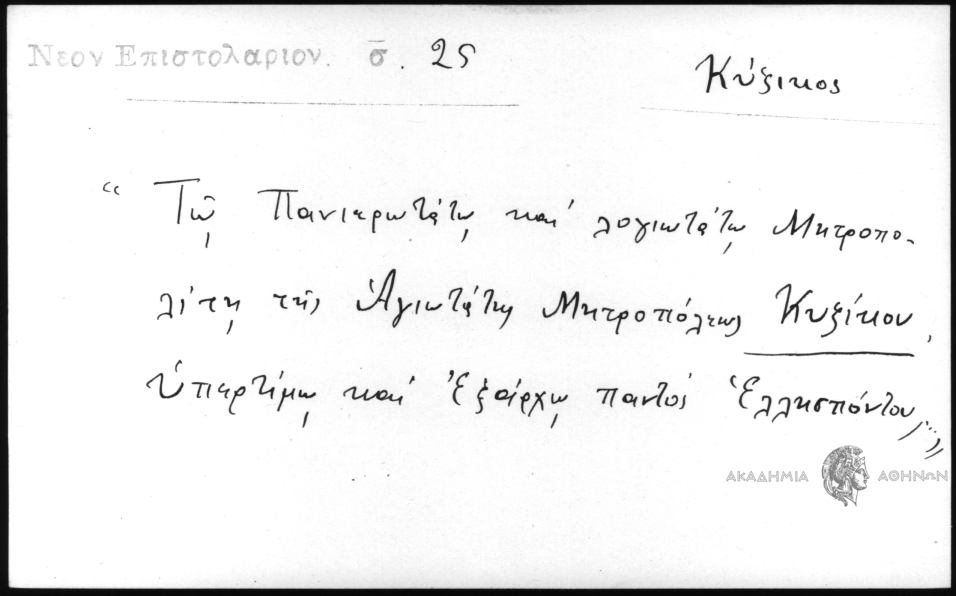 Νεον Επιστολαριον. σ̄. 25
Κύζικος
“ Τῷ Πανιερωτάτῳ καὶ λογιωτάτῳ Μητροπο-
λίτῃ τῆς Ἁγιωτάτης Μητροπόλεως Κυζίκου,
ὑπερτίμῳ καὶ Ἐξάρχῳ παντὸς Ἑλλησπόντου,..."
ΑΚΑΔΗΜΙΑ ΑΘΗΝΩΝ